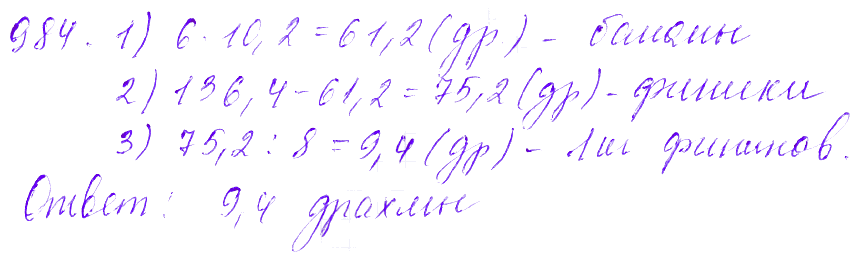 984. 1) 6 · 10,2 = 61,2 (др) - бананы
2) 136,4 - 61,2 = 75,2 (др) - финики
3) 75,2 : 8 = 9,4 (др) - 1 кг фиников.
Ответ: 9,4 драхмы